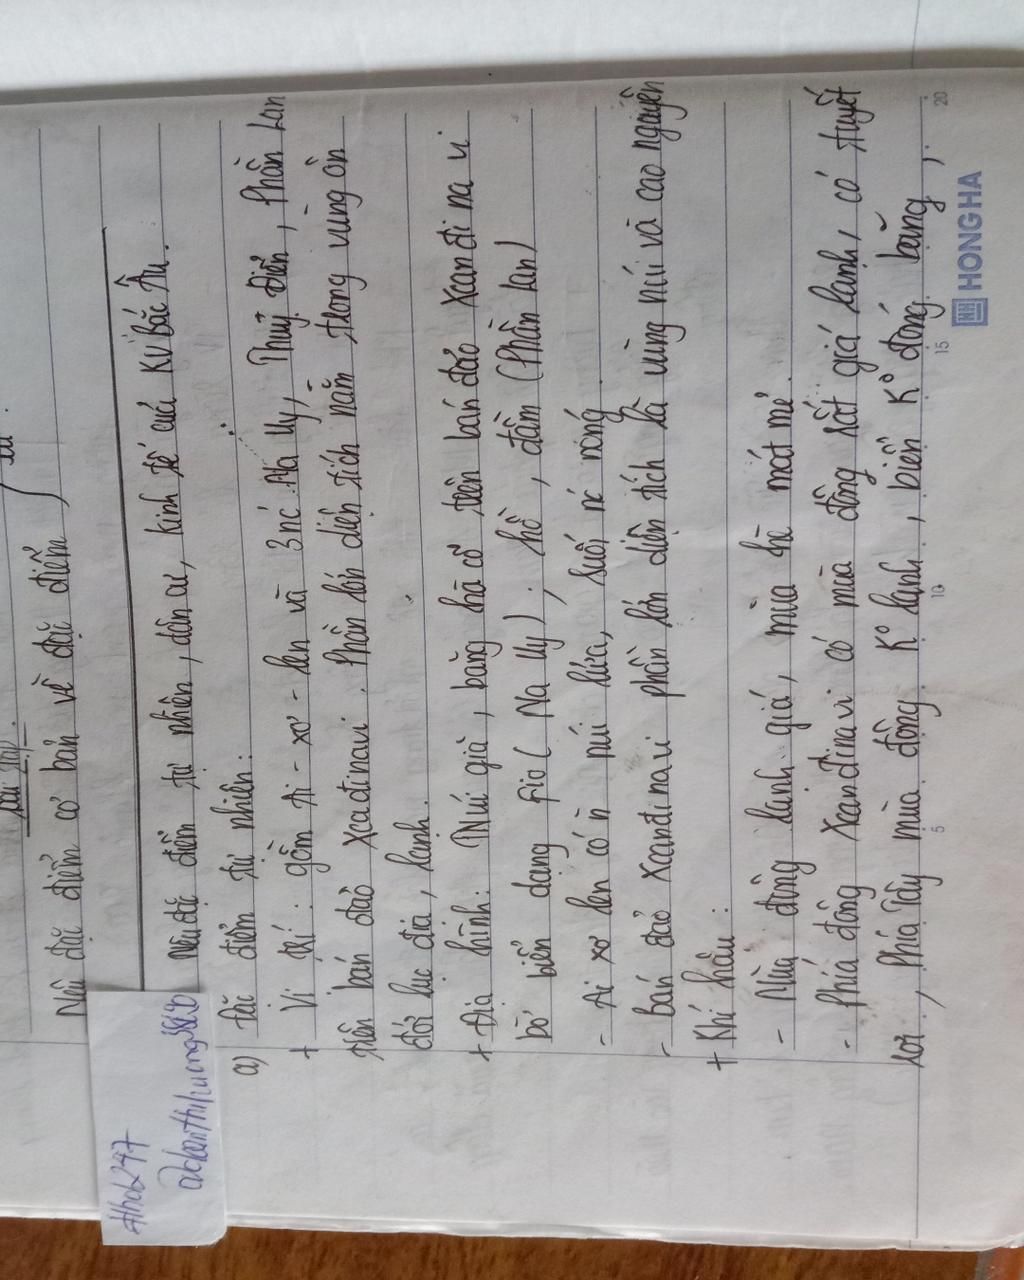 bài tập.
Nêu đặc điểm cơ bản về đặc điểm
Nêu đđ điểm tự nhiên, dân cư, kinh tế của KV bắc Âu.
a) Đặc điểm tự nhiên:
+ Vị trí: gồm Ai-xơ-len và 3 nc Na Uy, Thuỵ Điển, Phần Lan
trên bán đảo Xcađinavi. Phần lớn diện tích nằm trong vùng ôn
đới lục địa, lạnh.
+ Địa hình: Núi già, băng hà cổ trên bán đảo Xcanđinavi
bờ biển dạng fio (Na Uy), hồ, đầm (Phần Lan)
- Ai xơ len có n núi lửa, suối nc nóng
- bán đảo Xcanđinavi phần lớn diện tích là vùng núi và cao nguyên
+ Khí hậu:
- Mùa đông lạnh giá, mùa hè mát mẻ.
- Phía đông Xcanđinavi có mùa đông rất giá lạnh, có tuyết
rơi, Phía Tây mùa đông K° lạnh, biển K° đóng băng,
5 10 15 20
HONG HA
Hoh247